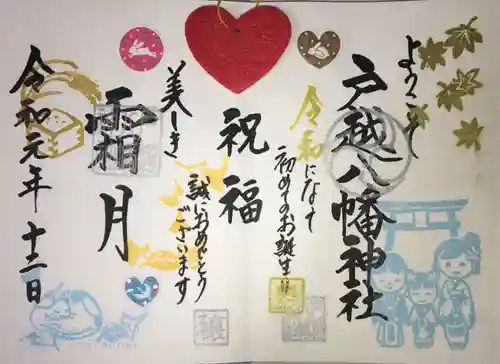 ようこそ
戸越八幡神社
令和になって
初めてのお誕生日
祝福
誠におめでとう
ございます
美しき
霜月
令和元年十二日